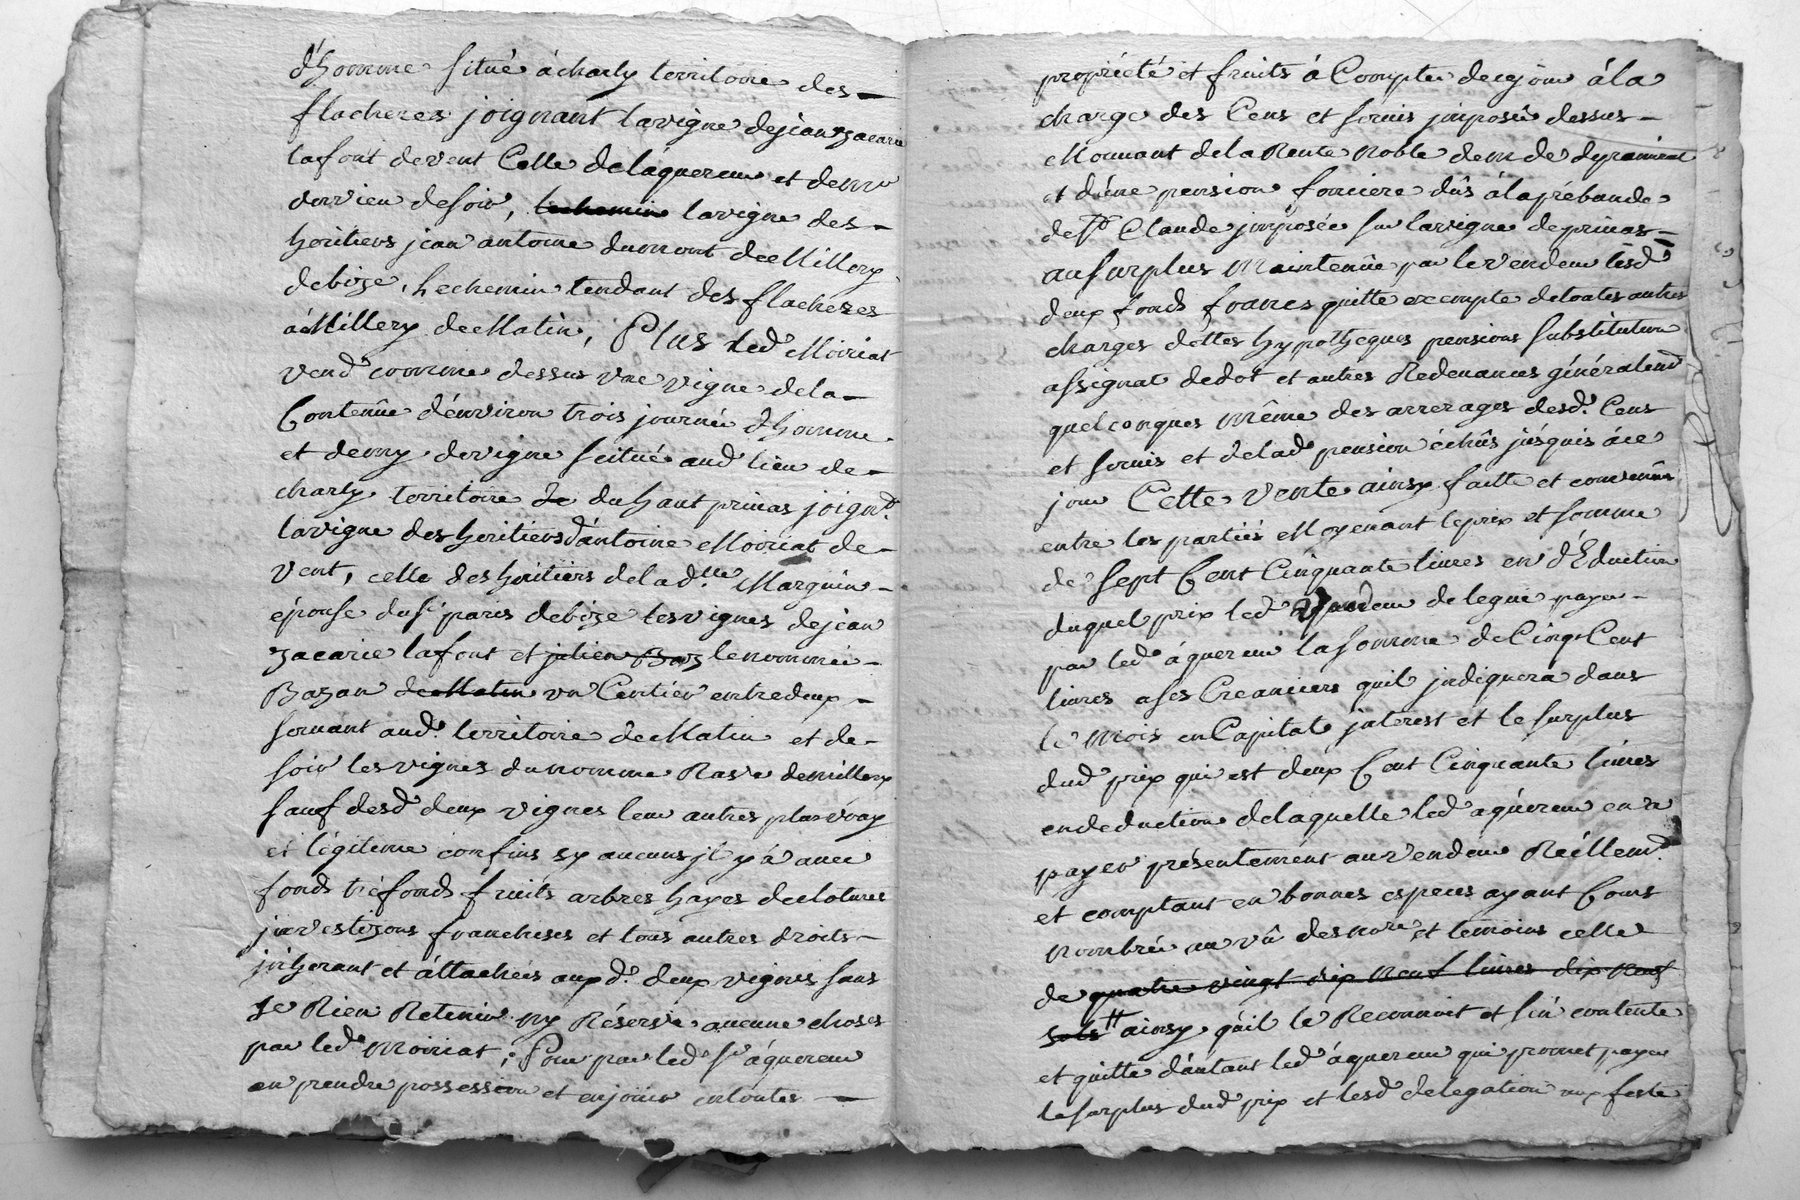 d'homme situé à charly territoire des
flacheres joignant la vigne de jean zacarie
lafont de vent Celle de láquereur et de mr
de soir, le chemin la vigne des
heritiers jean antoine dumont de Millery
de bize, le chemin tendant des flacheres
à Millery de Matin, Plus led. Moiriat
vend comme dessus une vigne de la
Contenüe d'environ trois journée d'homme
et demy de vigne scitué aud. lieu de
charly territoire de du haut prinas joignt.
la vigne des heritiers d'antoine Moiriat de
vent, celle des heritiers de la dlle. Marguin
épouse du sr. paris de bize les vignes de jean
zacarie lafont et julien le nommée
Bazan de Matin un Centier entredeux
servant aud. territoire de Matin et de
soir les vignes du nomme Rave de millery
sauf desd. deux vignes leur autres plus vray
et légitime confins sy aucuns jl y à avec
fonds tréfonds fruits arbres hayes de clotures
jnvestizons franchises et tous autres droits
jnherant et áttachées auxd. deux vignes sans
se Rien Retenir ny Réserve aucune choses
par led. Moiriat; Pour par led. sr. áquereur
en prendre possession et en joüir en toutes
propriété et fruits á Compter de ce jour á la
charge des Cens et servis jmposés dessus
Mouvant de la Rente Noble de m de
et d'une pension fonciere düs á la prébande
de St. Claude jmposée sur la vigne de prinas
au surplus Maintenüe par le vendeur lesd.
deux fonds francs quitte exempte de toutes autres
charges dettes hypotheques pensions substitution
assignat de dot et autres Redevances généralemt.
quelconques même des arrerages desd. Cens
et servis et de lad. pension échûs júsquis áce
jour Cette vente ainsy faitte et convenüe
entre les parties Moyenant le prix et somme
de sept Cent Cinquante livres en d'Eduction
duquel prix led. vendeur delegue payer
par led. áquereur la somme de Cinq Cent
livres a ses Creanciers quil jndiquera dans
le mois en Capital jnterest et le surplus
dud. prix qui est deux Cent Cinquante livres
en deduction de laquelle led. aquéreur en a
payer présentement au vendeur Réellemt.
et comptant en bonnes especes ayant Cours
nombrée au vû des nores. et temoins celle
de quatre vingt dix neuf livres dix neuf
sols ainsy quil le Reconnoit et s'en contente
et quitte d'autant led. áquereur qui promet payer
le surplus dud. prix et lesd. delegation aux feste